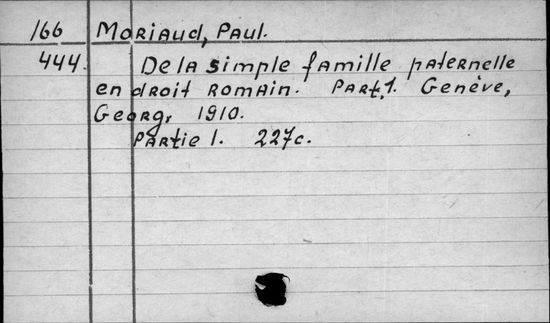 166 Moriaud, Paul.
444. De la simple famille paternelle
en droit romain. Part. 1. Genève,
Georg, 1910.
Partie 1. 227c.